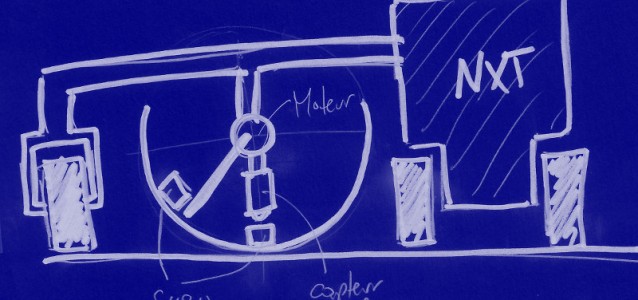 NXT
Moteur
capteur